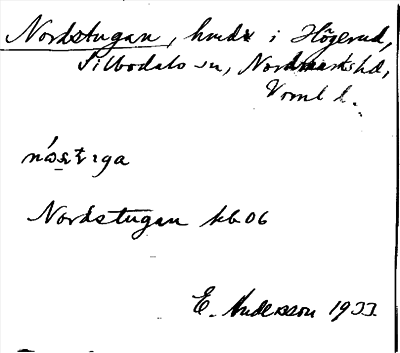 Nordstugan, hmdr i Högerud,
Silbodals sn, Nordmarks hd,
Vrml l.
Nordstugan kb 06
E. Andersson 1933